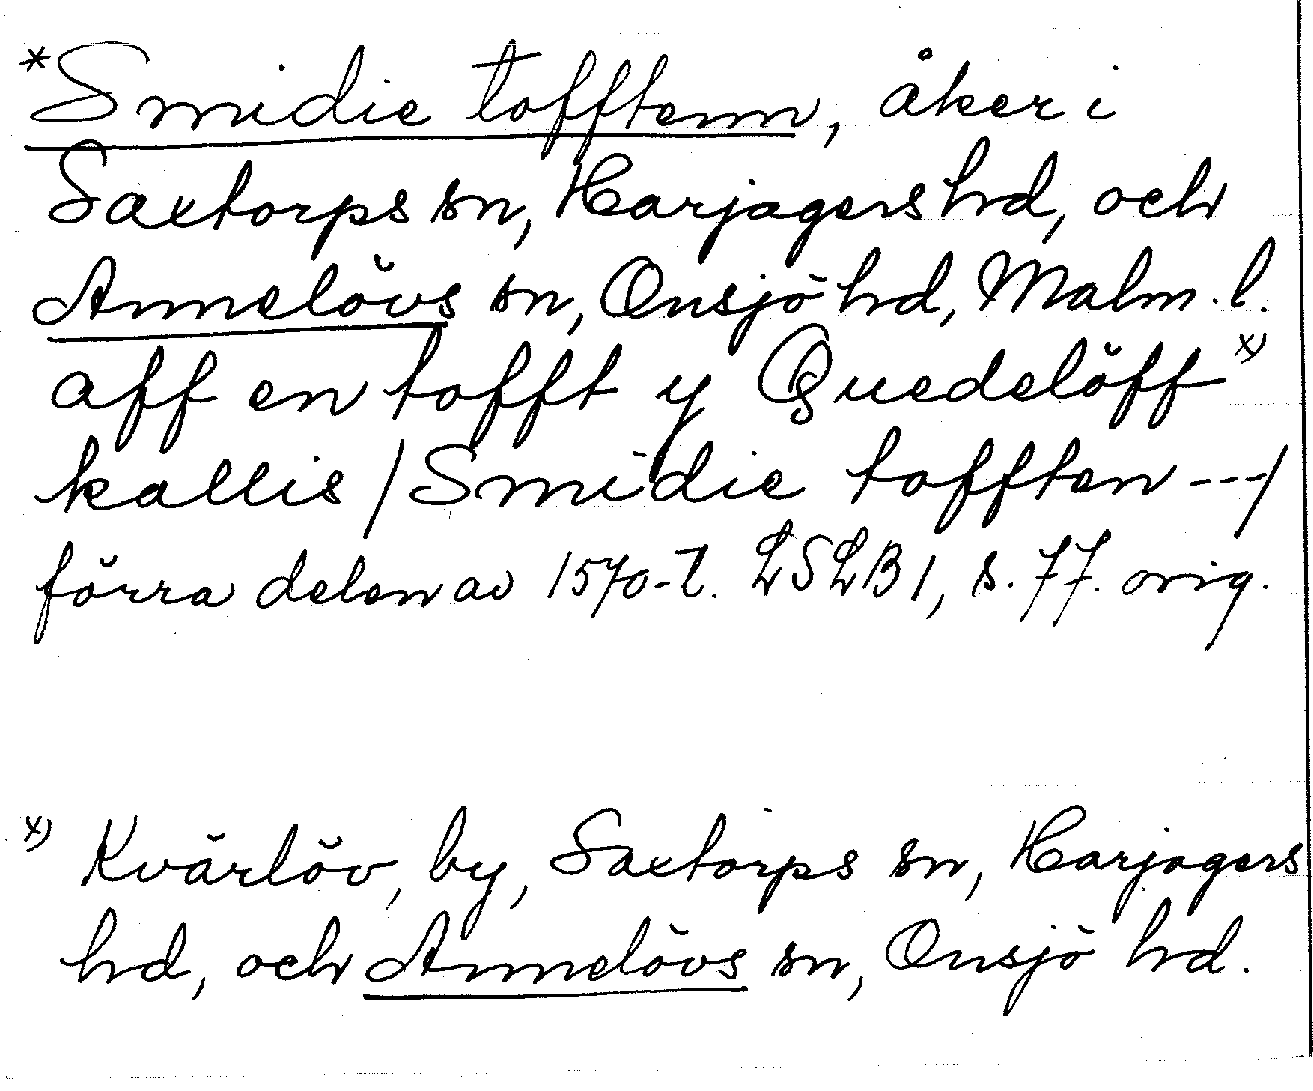 *Smidie tofftenn, åker i
Saxtorps sn, Harjagers hd, och
Annelövs sn, Onsjö hd, Malm. l.
aff en tofft y Quedelöff x)
kallis / Smidie tofften ---/
förra delen av 1570-t. LSLB 1, s. 77. orig.
x) Kvärlöv, by, Saxtorps sn, Harjagers
hd, och Annelövs sn, Onsjö hd.